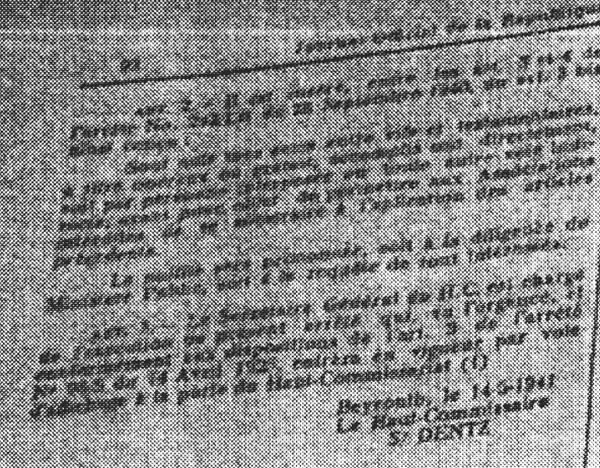 Journal Officiel de la République
ART. 2. — Il est inséré, entre les art. 3 et 4 de
l'arrêté No. du 28 Septembre 1940, un art. 3 bis
ainsi conçu :
Sont nuls tous actes entre vifs et testamentaires,
à titre onéreux ou gratuit, accomplis soit directement,
soit par personne interposée ou toute autre voie indi-
recte, ayant pour objet de permettre aux Associations
de se soustraire à l'application des articles
précédents.
La nullité sera prononcée, soit à la diligence du
Ministère Public, soit à la requête de tout intéressé.
ART. 3. — Le Secrétaire Général du H.C. est chargé
de l'exécution du présent arrêté qui, vu l'urgence, et
conformément aux dispositions de l'art. 3 de l'arrêté
No du 14 Avril entrera en vigueur par voie
d'affichage à la porte du Haut-Commissariat (1)
Beyrouth, le 14-5-1941
Le Haut-Commissaire
Sé DENTZ